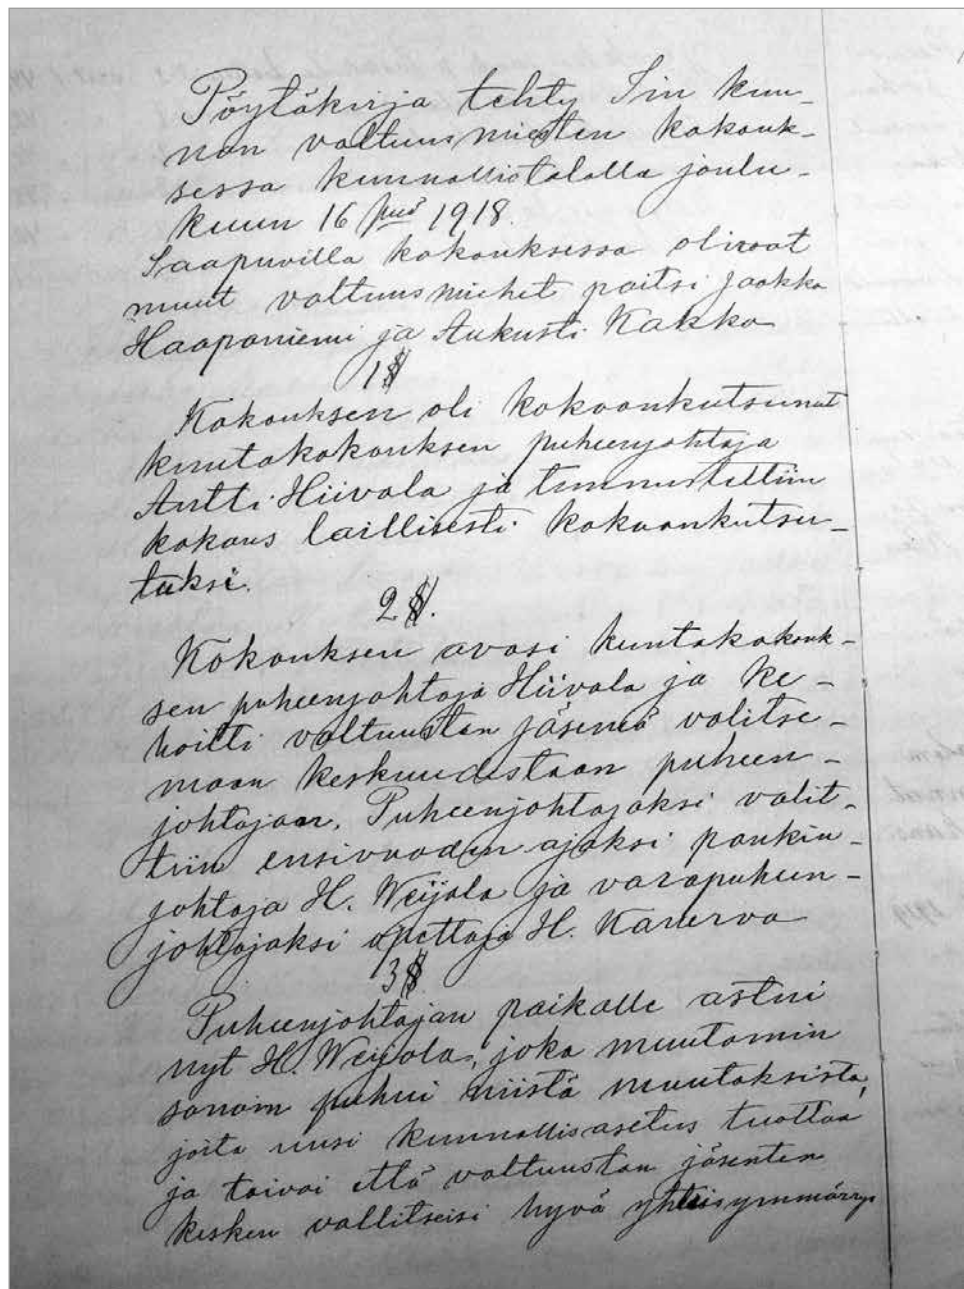 Pöytäkirja tehty Iin kun-
nan valtuusmiesten kokouk-
sessa kunnallistalolla joulu-
kuun 16 pnä 1918.
Saapuvilla kokouksessa olivat
muut valtuusmiehet paitsi Jaakko
Haapaniemi ja Aukusti Kakko
1 §
Kokouksen oli kokoonkutsunut
kuntakokouksen puheenjohtaja
Antti Hiivala ja tunnustettiin
kokous laillisesti kokoonkutsu-
tuksi.
2 §.
Kokouksen avasi kuntakokouk-
sen puheenjohtaja Hiivala ja ke-
hoitti valtuuston jäseniä valitse-
maan keskuudestaan puheen-
johtajan. Puheenjohtajaksi valit-
tiin ensivuoden ajaksi pankin-
johtaja H. Weijola ja varapuheen-
johtajaksi opettaja H. Kanerva
3 §.
Puheenjohtajan paikalle astui
nyt H. Weijola, joka muutamin
sanoin puhui niistä muutoksista,
joita uusi kunnallisasetus tuottaa
ja toivoi että valtuuston jäsenten
kesken vallitseisi hyvä yhteisymmärrys